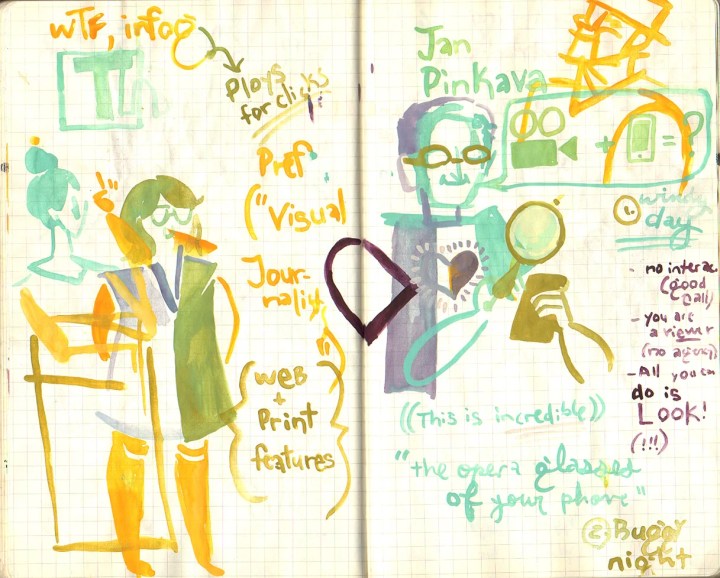 WTF, infog
Ploys
for clicks
Pref
("Visual
Jour-
nalist
(web
+
Print
features
Jan
Pinkava
+ = ?
① windy
day
- no interac
(good
call)
- you are
a viewer
(no agency)
- All you can
do is
LOOK!
(!!!)
((This is incredible))
"the opera glasses
of your phone"
② Buggy
night